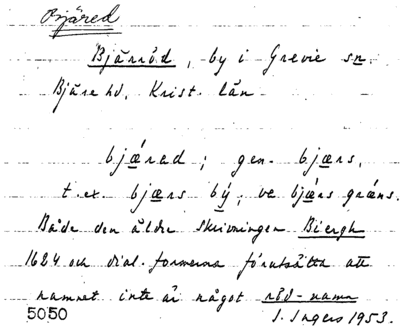 Bjäred
Bjäröd, by i Grevie sn.
Bjäre hd, Krist. län
bjærad; gen. bjærs,
t.ex. bjærs bý, ve bjærs græns.
Både den äldre skrivningen Biergh
1624 och dial. formerna förutsätta att
namnet inte är något röd-namn
5050 I. Ingers 1953.